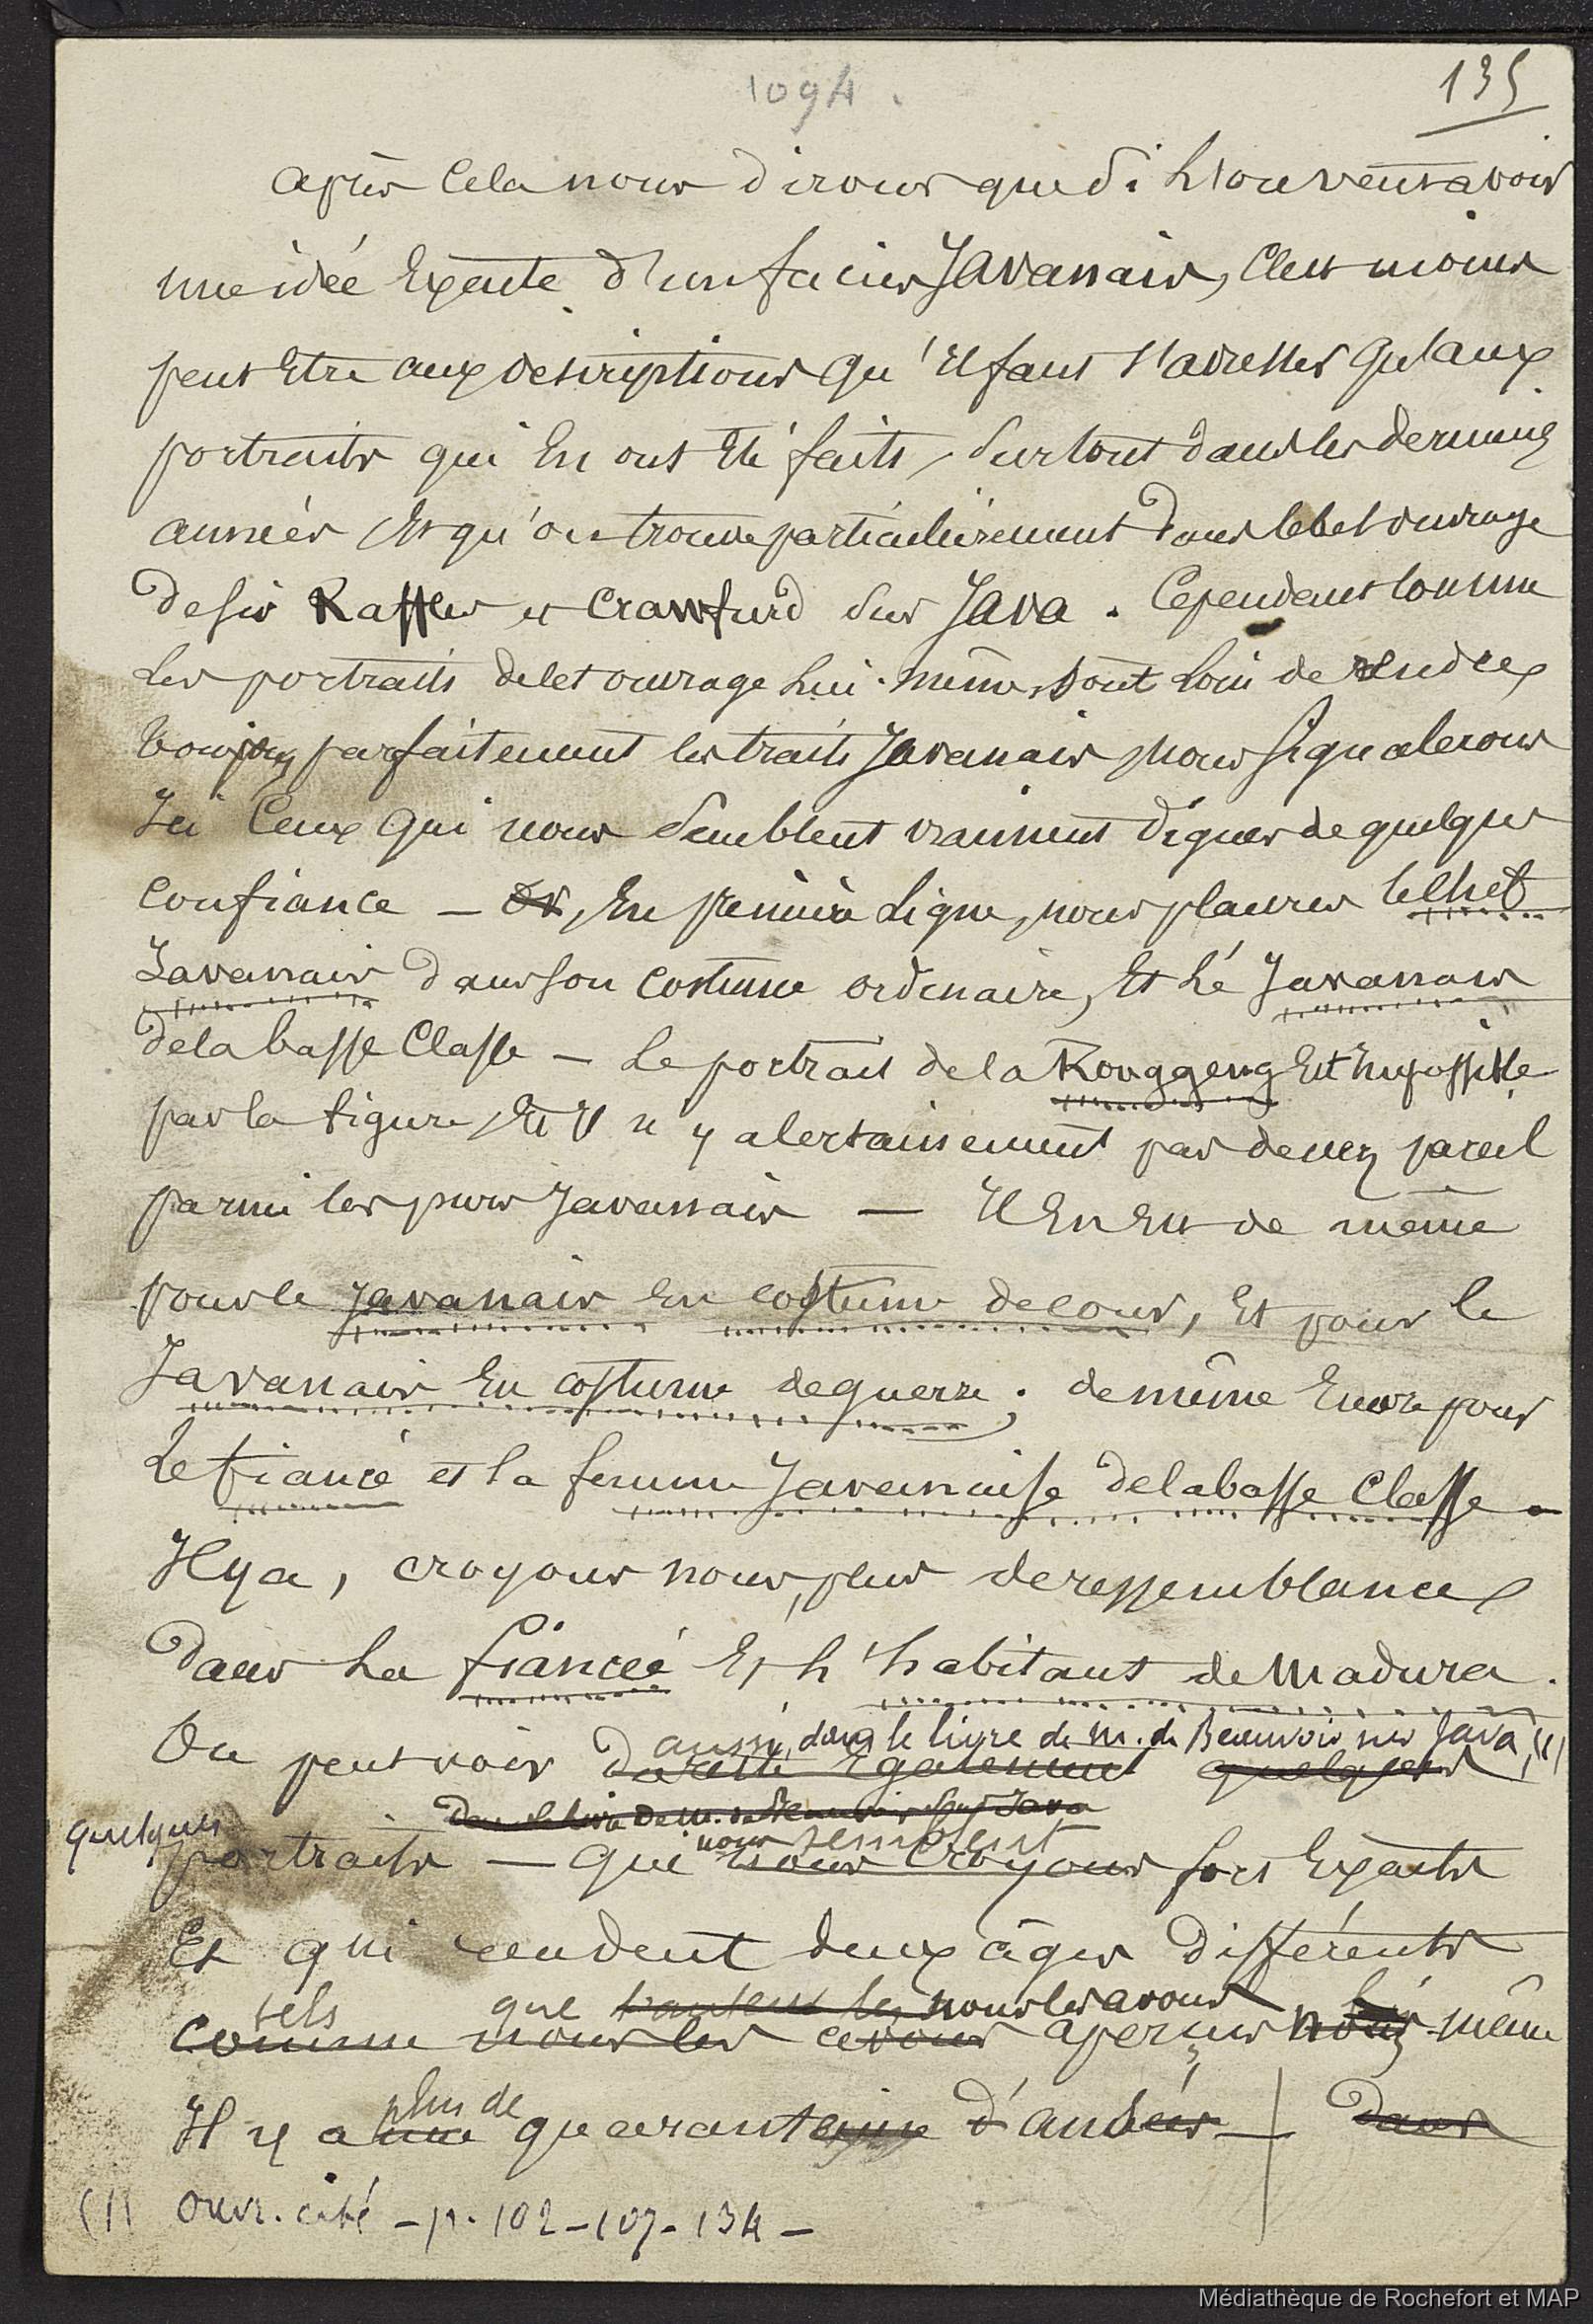 1094.
135
après cela nous dirons que si l'on veut avoir
une idée Exacte d'un facies Javanais, c'est moins
peut Etre aux descriptions qu'il faut s'adresser qu'aux
portraits qui En ont Eté faits, surtout dans les dernières
années Et qu'on trouve particulièrement dans le bel ouvrage
de sir Raffles et Crawfurd sur Java. Cependant comme
les portraits de cet ouvrage lui-même, sont loin de rendre
toujours parfaitement les traits Javanais, nous signalerons
Ici ceux qui nous semblent vraiment dignes de quelque
confiance — Or, En première ligne, nous placerons le chef
Javanais dans son costume ordinaire, Et le Javanais
de la basse classe — Le portrait de la Ronggeng Est impossible
par la figure, Et il n'y a certainement pas de nez pareil
parmi les purs Javanais — Il En Est de même
pour le Javanais En costume de cour, Et pour le
Javanais En costume de guerre; de même Encore pour
Le fiancé et la femme Javanaise de la basse classe —
Il y a, croyons nous, plus de ressemblance
dans la fiancée Et l'habitant de Madura.
aussi, dans le livre de M. de Beauvoir sur Java, (1)
On peut voir Egalement quelques
dans le livre de M. de Beauvoir sur Java
quelques
nous semblent
portraits — qui nous croyons fort Exacts
Et qui rendent deux âges différents
tels que nous les avons
comme nous les avons aperçus nous même
plus de
Il y a une quarantaine d'années — dans
(1) Ouvr. cité — p. 102 — 107 — 134 —
Médiathèque de Rochefort et MAP